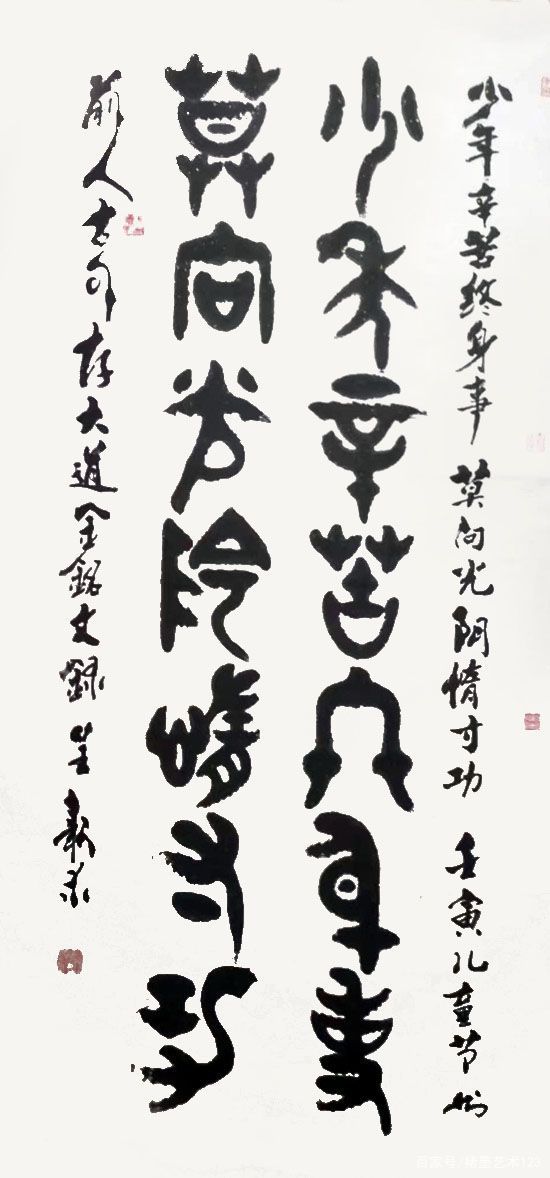 少年辛苦终身事 莫向光阴惰寸功 壬寅儿童节
少年辛苦终身事
莫向光阴惰寸功
前人古 存大道金銘文録
百家号/ 墨艺术123